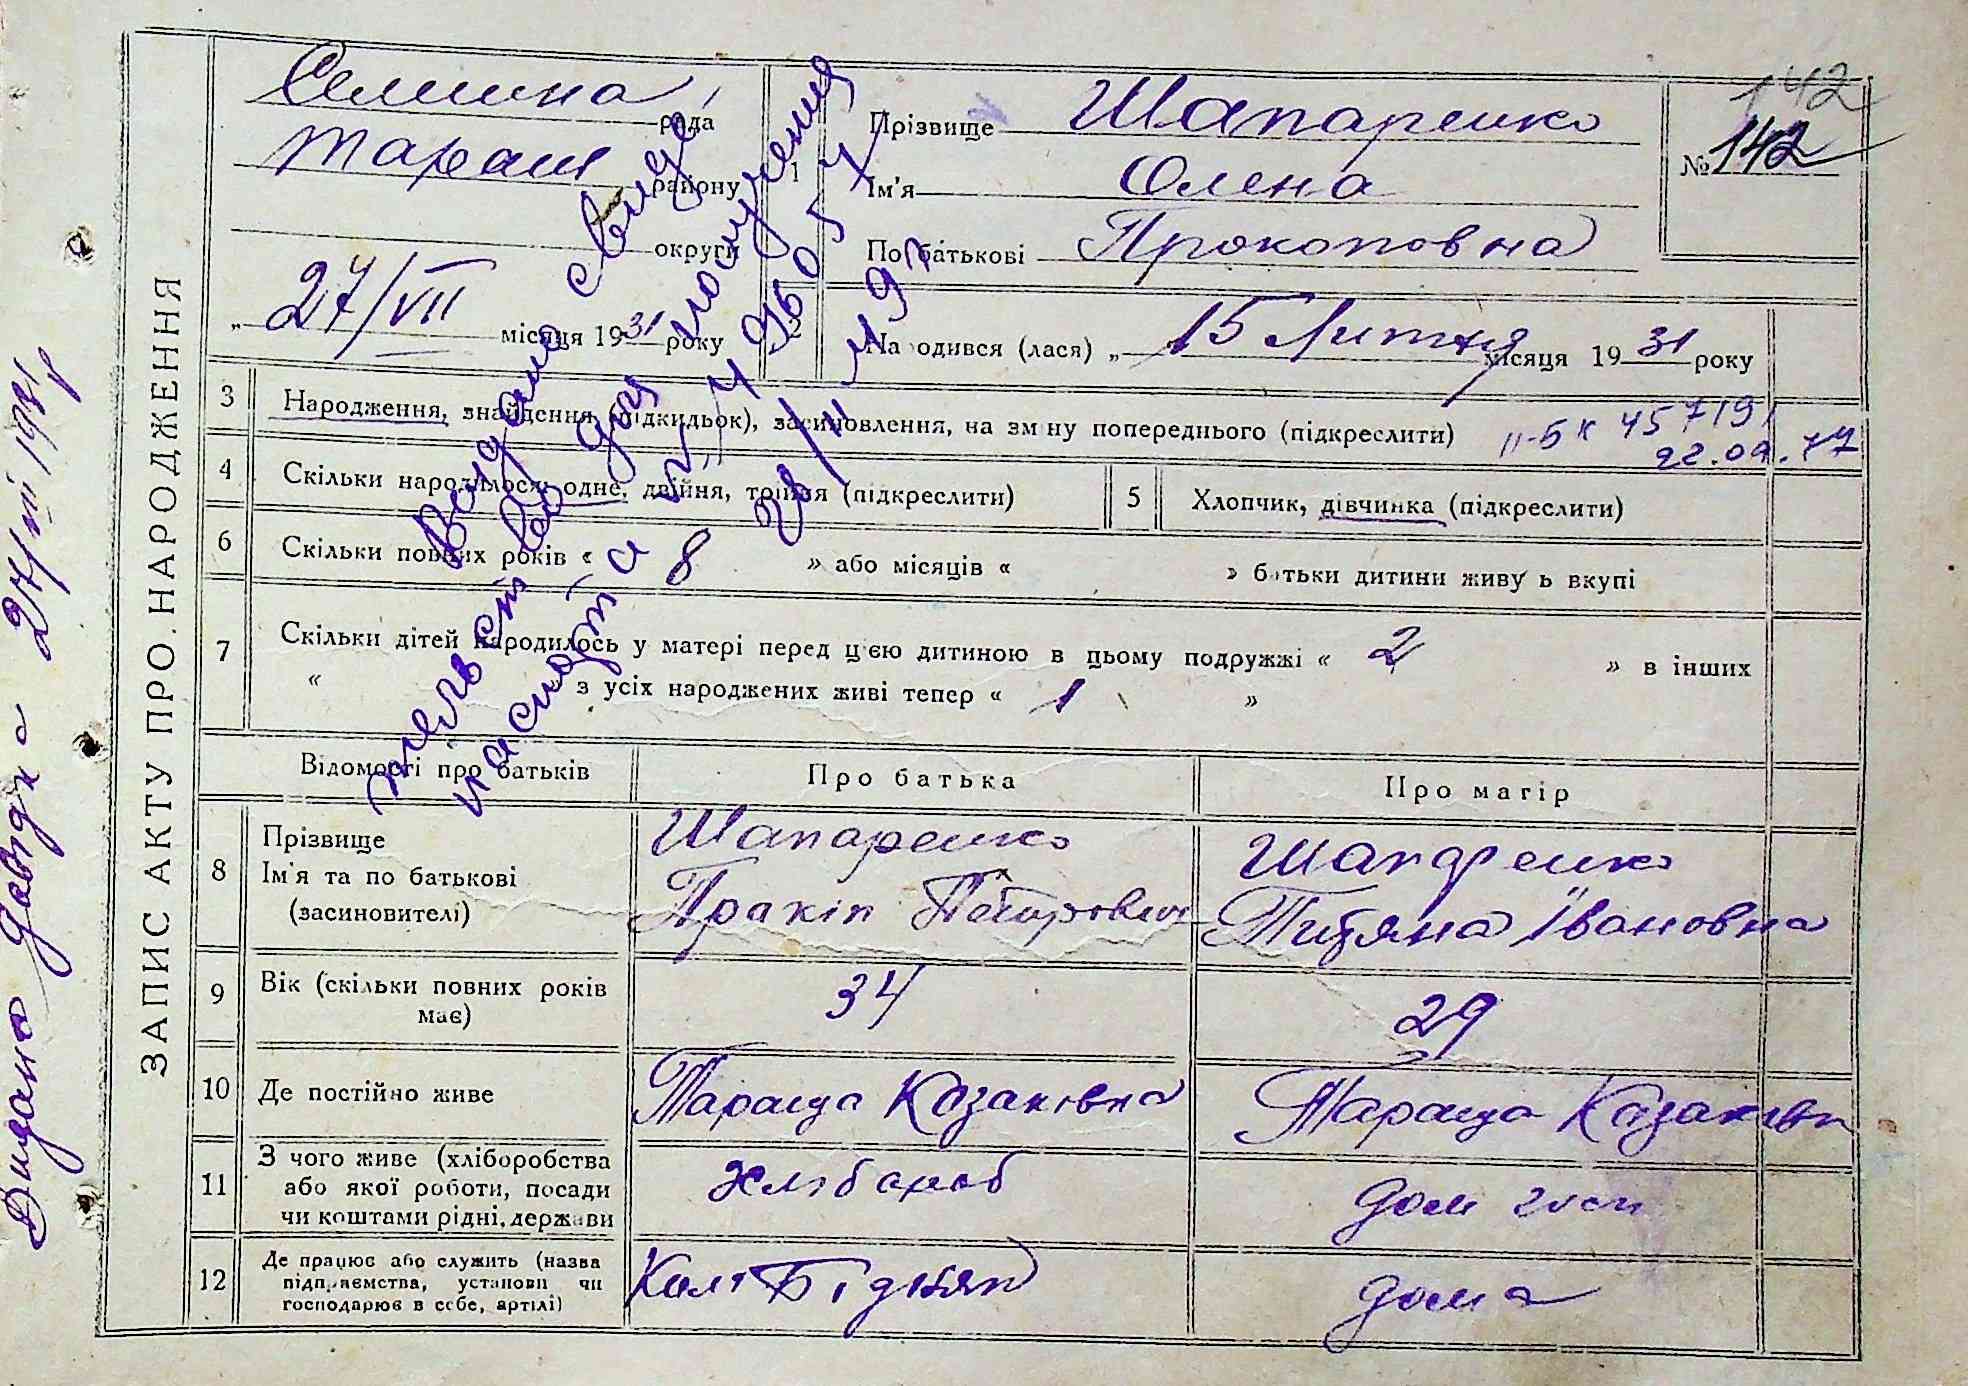 ЗАПИС АКТУ ПРО НАРОДЖЕННЯ
Селишна рада
Таращ району
округи
„27/VII місяця 1931 року
1
Прізвище Шапаренко
Ім'я Олена
По батькові Прокоповна
142
№ 142
2
Народився (лася) „15 Лютня місяця 1931 року
3 Народження, знайдення (підкидьок), засиновлення, на зміну попереднього (підкреслити)
II-БК 457191
22.09.77
4 Скільки народилося: одне, двійня, трійня (підкреслити)
5 Хлопчик, дівчинка (підкреслити)
6 Скільки повних років « » або місяців « » батьки дитини живуть вкупі
7 Скільки дітей народилось у матері перед цією дитиною в цьому подружжі « 2 » в інших
« з усіх народжених живі тепер « 1 »
Відомості про батьків Про батька Про матір
8 Прізвище
Ім'я та по батькові
(засиновителі)
Шапаренко
Пракіп Петрович
Шапаренко
Титяна Івановна
9 Вік (скільки повних років має) 34 29
10 Де постійно живе Тараща Казаківка Тараща Казаківк
11 З чого живе (хліборобства
або якої роботи, посади
чи коштами рідні, держави
Хлібароб
дом госп
12 Де працює або служить (назва
підприємства, установи чи
господарює в себе, артілі)
дома
Видано свиде
тельство для получения
паспорта
28/II
Видано довідка 27/VII 1931 р